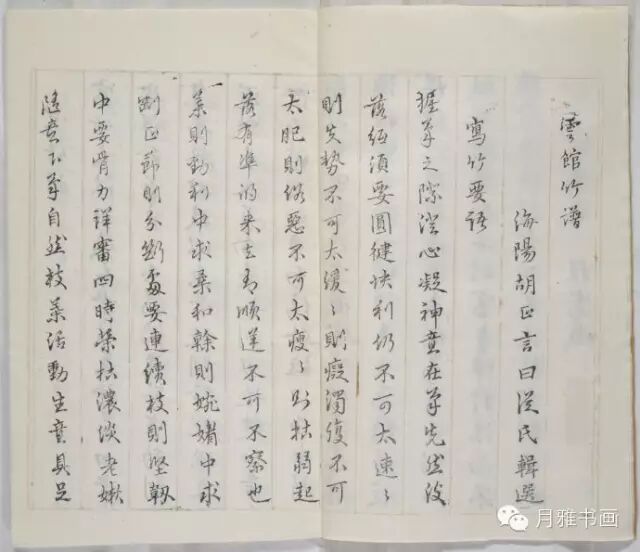 雲館竹譜
海陽胡正言曰從氏輯選
寫竹要語
握筆之際澄心凝神意在筆先然後
落紙須要圓健快利仍不可太速〻
則失勢不可太緩〻則癡濁復不可
太肥則俗惡不可太瘦〻則枯弱起
落有準的来去有順逆不可不察也
葉則勁利中求柔和榦則婉媚中求
剛正節則分斷處要連續枝則堅韌
中要骨力詳審四時榮枯濃淡老嫩
隨意下筆自然枝葉活動生意具足
月雅书画